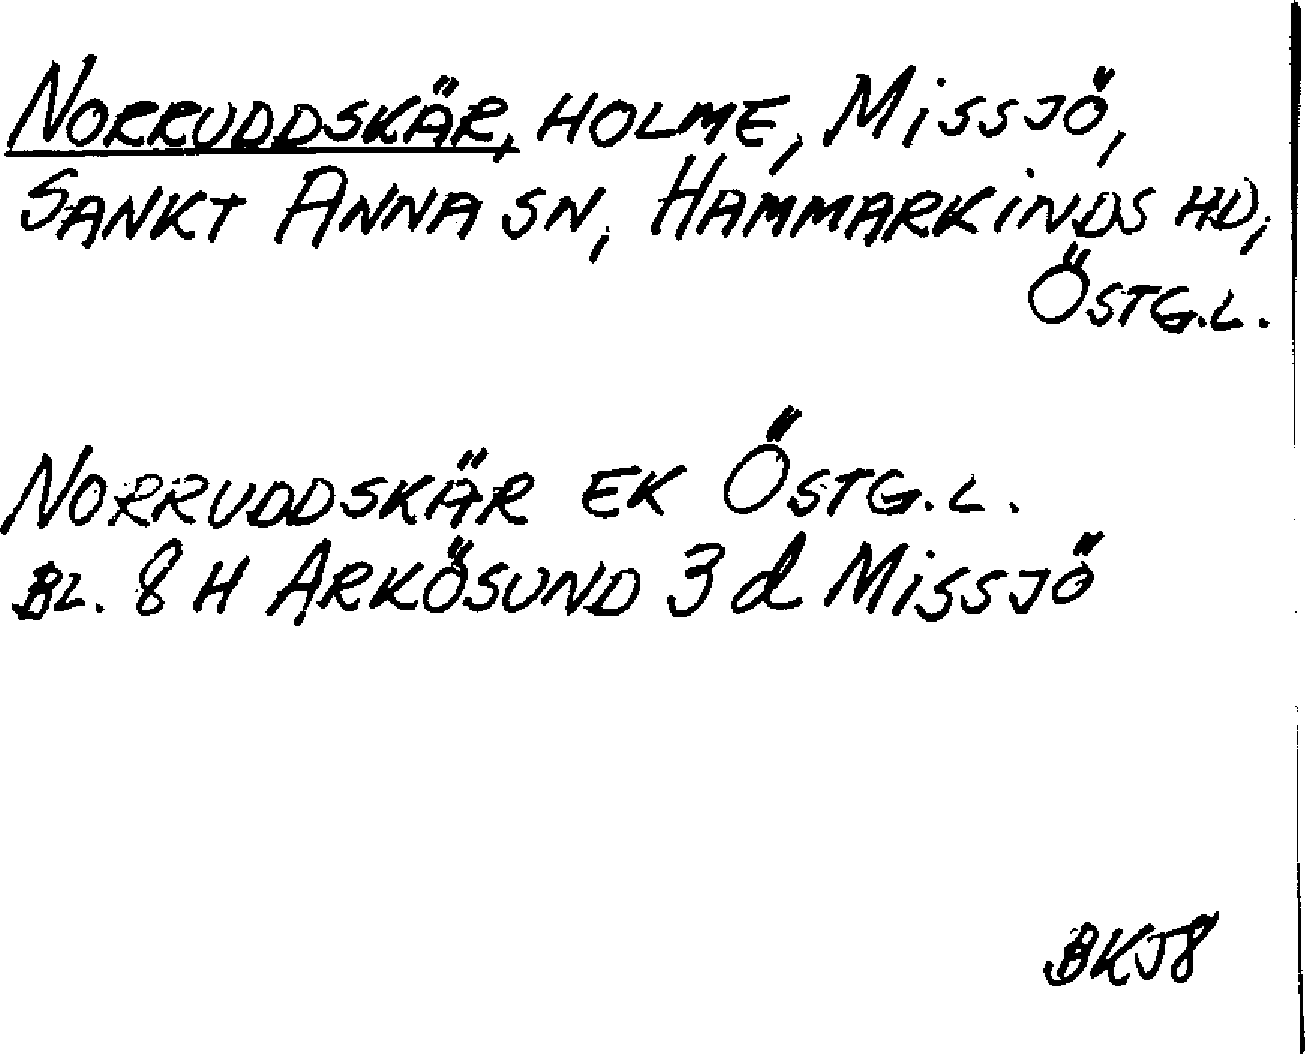 NORRUDDSKÄR, HOLME, MISSJÖ,
SANKT ANNA SN, HAMMARKINDS HD,
ÖSTG.L.
NORRUDDSKÄR EK ÖSTG.L.
BL. 8 H ARKÖSUND 3 d MISSJÖ
BKJ8